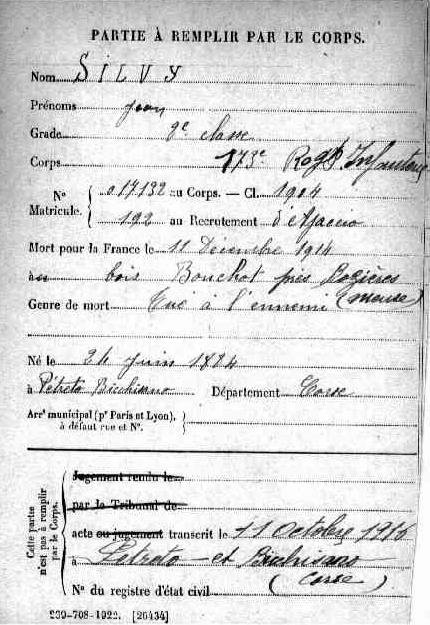 PARTIE À REMPLIR PAR LE CORPS.
Nom SILVY
Prénoms Jean
Grade 2e classe
Corps 173e Regt Infanterie
No Matricule. { 017132 au Corps. — Cl. 1904
192 au Recrutement d'Ajaccio
Mort pour la France le 11 Décembre 1914
au bois Bouchot près (Meuse)
Genre de mort Tué à l'ennemi
Né le 24 juin 1884
à Pétreto Bicchisano Département Corse
Arrt municipal (pr Paris et Lyon),
à défaut rue et No.
Cette partie n'est pas à remplir par le Corps.
Jugement rendu le
par le Tribunal de
acte ou jugement transcrit le 11 Octobre 1916
à Petreto - et Bicchisano
(Corse)
No du registre d'état civil
239-708-1922. [26434]